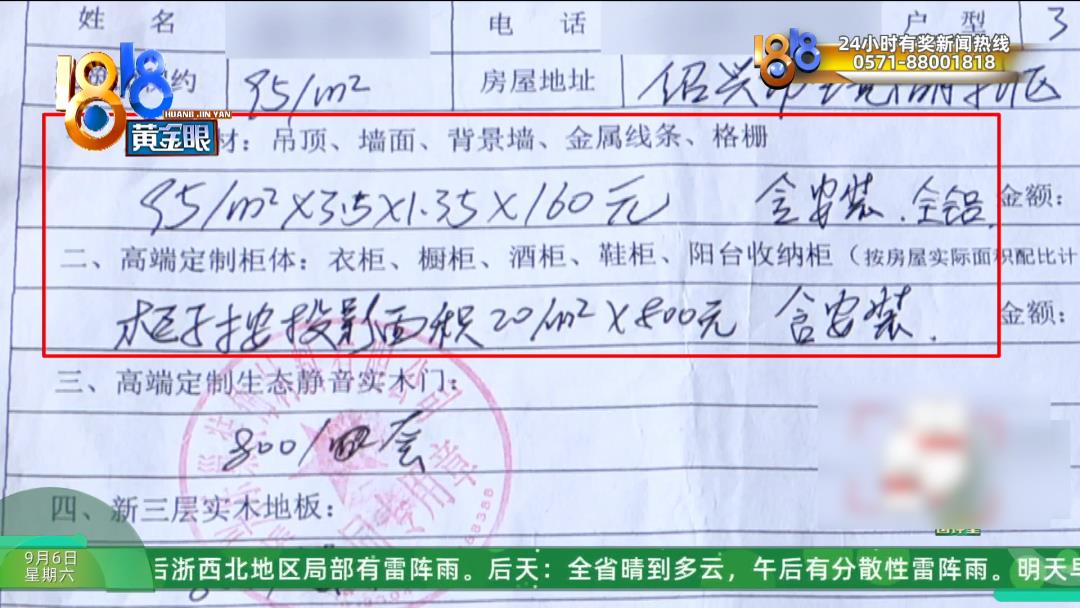 姓 名 电 话 户 型 3
约 95/m² 房屋地址 绍兴市
1818 HUANG JIN YAN 黄金眼
24小时有奖新闻热线
0571-88001818
材：吊顶、墙面、背景墙、金属线条、格栅
95/m²×3.5×1.35×160元 含安装.全铝 金额：
二、高端定制柜体：衣柜、橱柜、酒柜、鞋柜、阳台收纳柜（按房屋实际面积配比计
柜子按投影面积20/m²×800元 含安装. 金额：
三、高端定制生态静音实木门：
800/
四、新三层实木地板：
68388
9月6日
星期六
后浙西北地区局部有雷阵雨。后天：全省晴到多云，午后有分散性雷阵雨。明天早